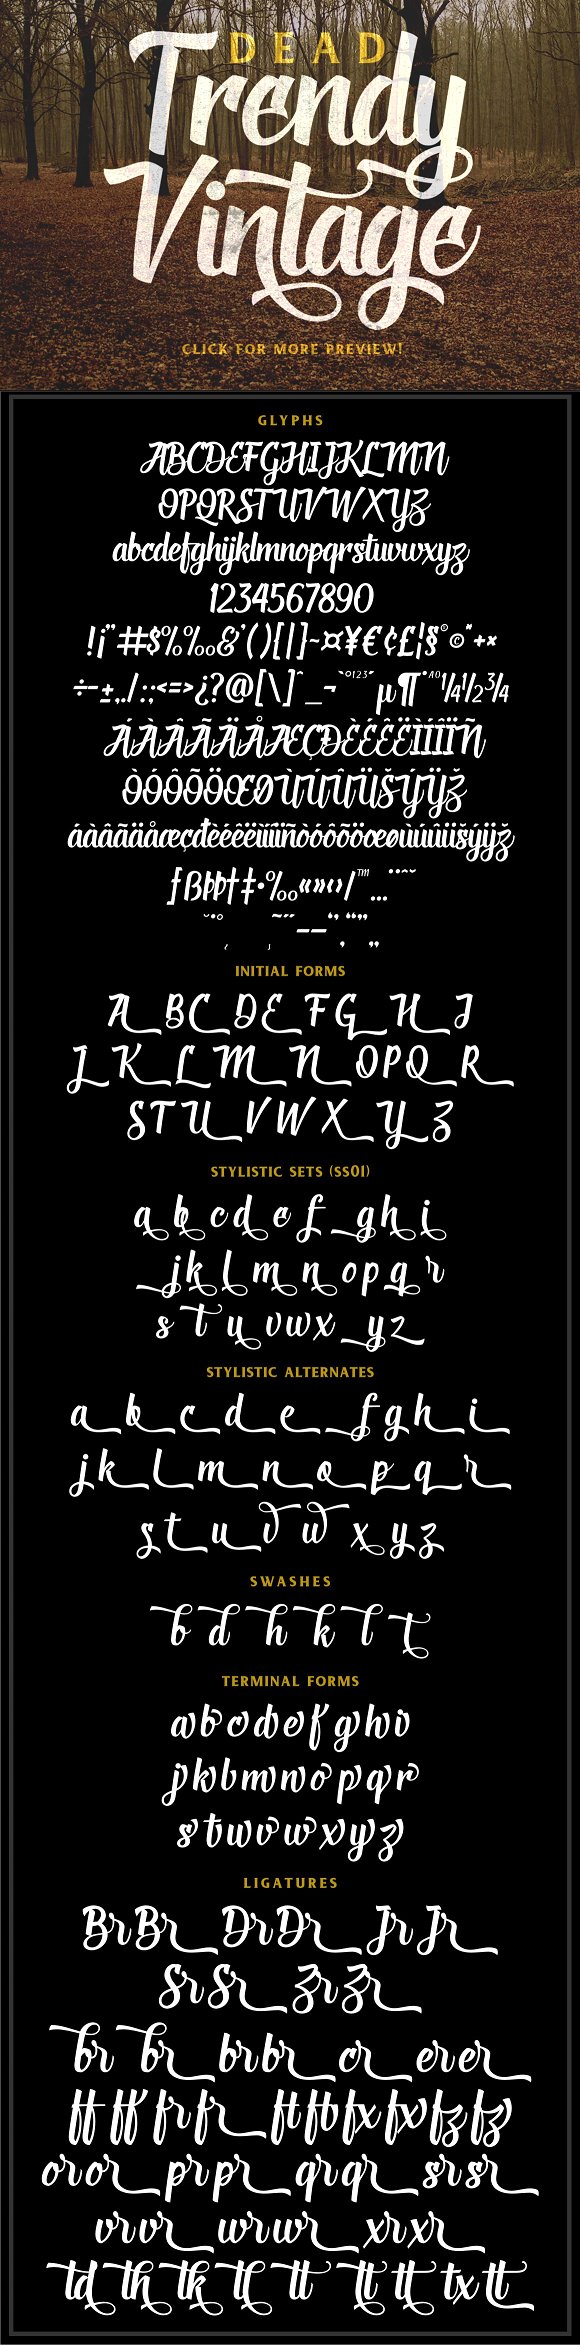 DEAD
Trendy
Vintage
CLICK FOR MORE PREVIEW!
GLYPHS
ABCDEFGHIJKLMN
OPQRSTUVWXYZ
abcdefghijklmnopqrstuvwxyz
1234567890
!¡"#$%‰&'()[|]~¤¥€¢£¦§®©*+×
÷-±,./:;<=>¿?@[\]^_¬
µ¶ ¼½¾
ÁÀÂÃÄÅÆÇÐÈÉÊËÌÍÎÏÑ
ÒÓÔÕÖŒØÙÚÛÜŠÝŸŽ
áàâãäåæçđèéêëìíîïñòóôõöœøùúûüšýÿž
ƒßÞþ†‡•‰«»‹›/™…
INITIAL FORMS
A B C D E F G H I
J K L M N O P Q R
S T U V W X Y Z
STYLISTIC SETS (SS01)
a b c d e f g h i
j k l m n o p q r
s t u v w x y z
STYLISTIC ALTERNATES
a b c d e f g h i
j k l m n o p q r
s t u v w x y z
SWASHES
b d h k l t
TERMINAL FORMS
a b c d e f g h i
j k l m n o p q r
s t u v w x y z
LIGATURES
Br Br Dr Dr Jr Jr
Sr Sr Zr Zr
br br br br cr er er
ff ff fr fr ft fb fx fx fz fz
or or pr pr qr qr sr sr
vr vr wr wr xr xr
td th tk tl tt tt tt tx tt